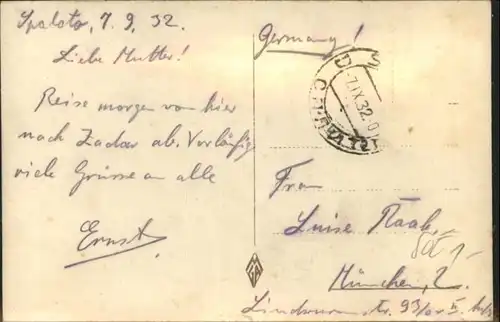 Spalato, 7. 9. 32.
Liebe Mutter!
Reise morgen von hier
nach Zadar ab. Vorläufig
viele Grüsse an alle
Ernst
Germany!
7.IX.32-0
Frau
Luise Raab
München, 2.
Lindwurmstr. 93